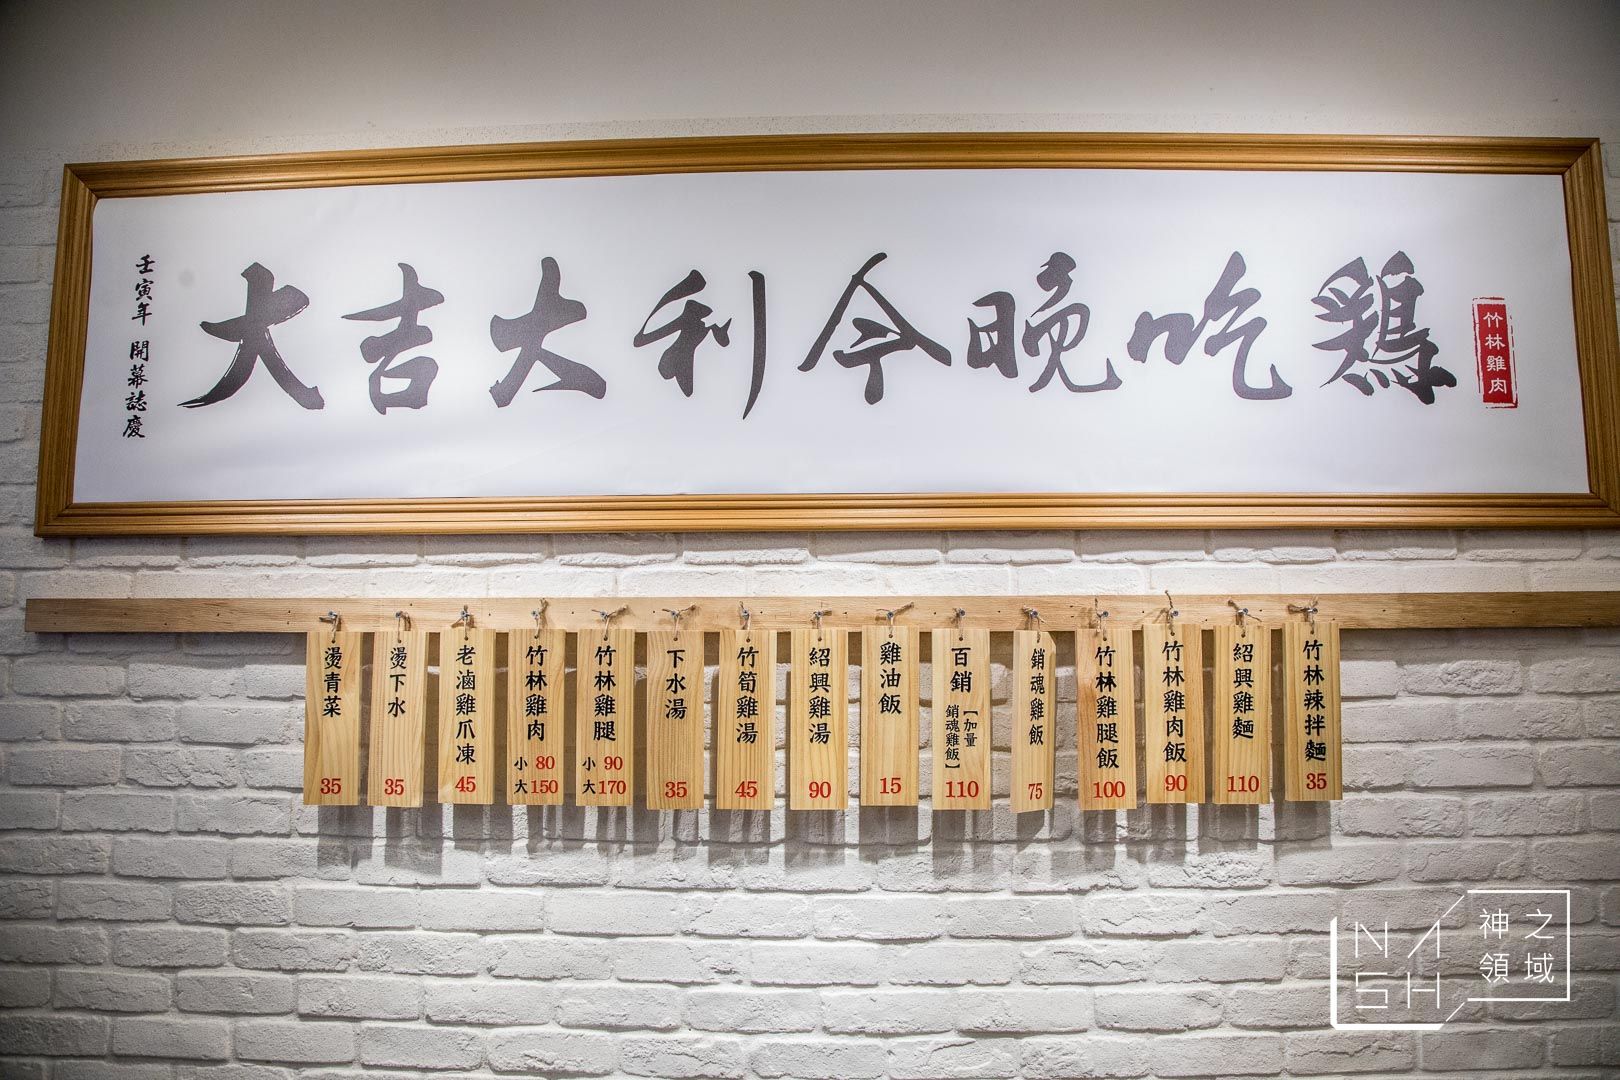 大吉大利今晚吃鷄
竹林雞肉
壬寅年 開幕誌慶
竹林辣拌麵 35
紹興雞麵 110
竹林雞肉飯 90
竹林雞腿飯 100
銷魂雞飯 75
百銷【加量銷魂雞飯】 110
雞油飯 15
紹興雞湯 90
竹筍雞湯 45
下水湯 35
竹林雞腿 小 90 大 170
竹林雞肉 小 80 大 150
老滷雞爪凍 45
燙下水 35
燙青菜 35
NASH 神之領域